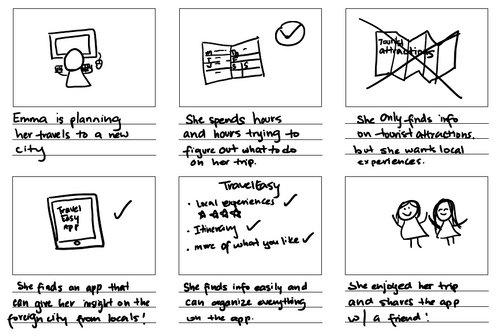 Emma is planning
her travels to a new
city
She spends hours
and hours trying to
figure out what to do
on her trip.
Tourist
attractions
She only finds info
on tourist attractions.
but she wants local
experiences.
Travel
Easy
App
She finds an app that
can give her insight on the
foreign city from locals!
TravelEasy
• Local experiences
• Itinerary
• more of what you like
She finds info easily and
can organize everything
on the app.
She enjoyed her trip
and shares the app
w/ a friend!